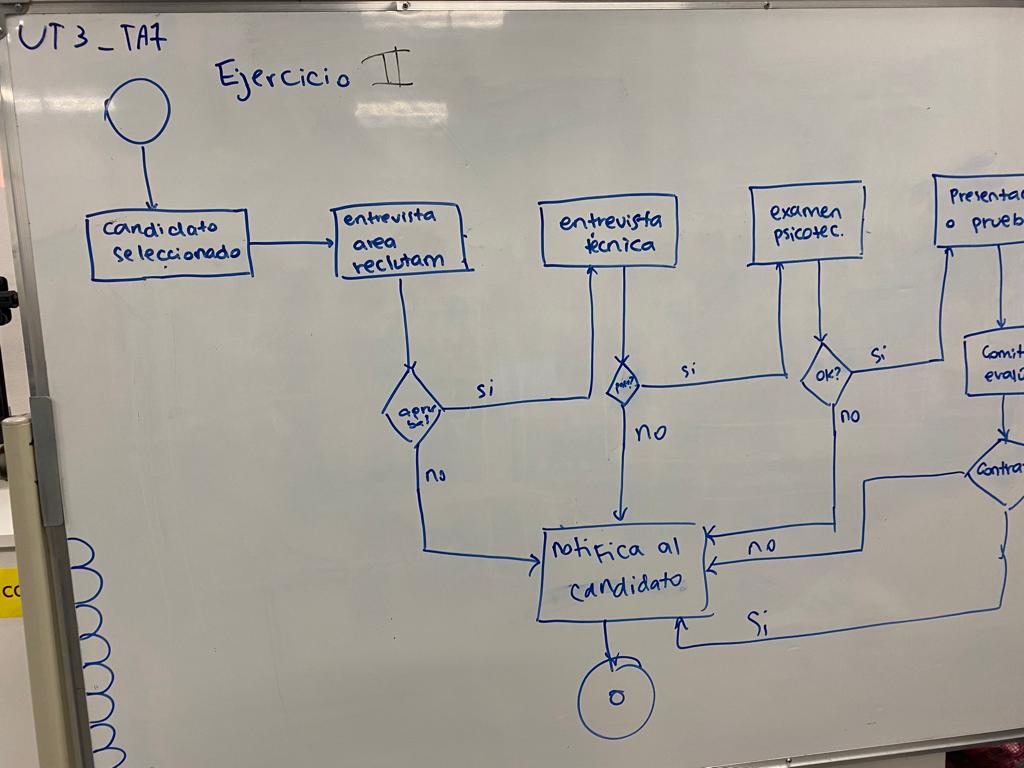 UT3_TA7
Ejercicio II
candidato
seleccionado
entrevista
area
reclutam
entrevista
técnica
examen
psicotec.
Presentac
o prueb
Comit
evalú
si
si
OK?
si
no
no
no
Contra
notifica al
candidato
no
Si